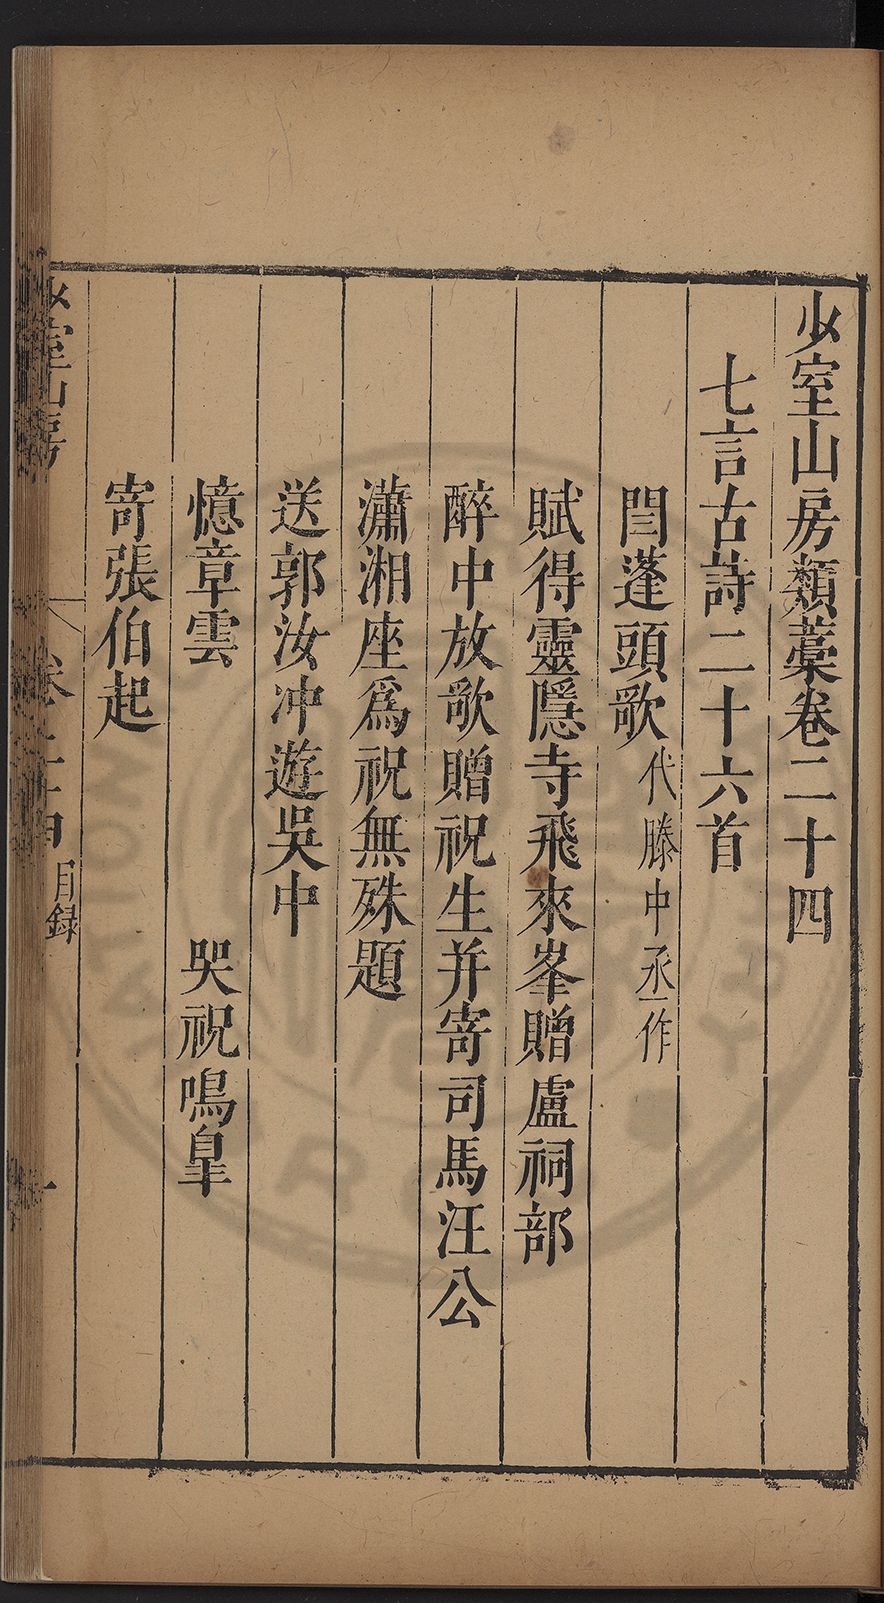 少室山房類藁卷二十四
七言古詩二十六首
閆蓬頭歌代滕中丞作
賦得靈隱寺飛來峯贈盧祠部
醉中放歌贈祝生并寄司馬汪公
瀟湘座爲祝無殊題
送郭汝冲遊吳中
憶章雲 哭祝鳴臯
寄張伯起
少室山房 卷二十四 目録 一